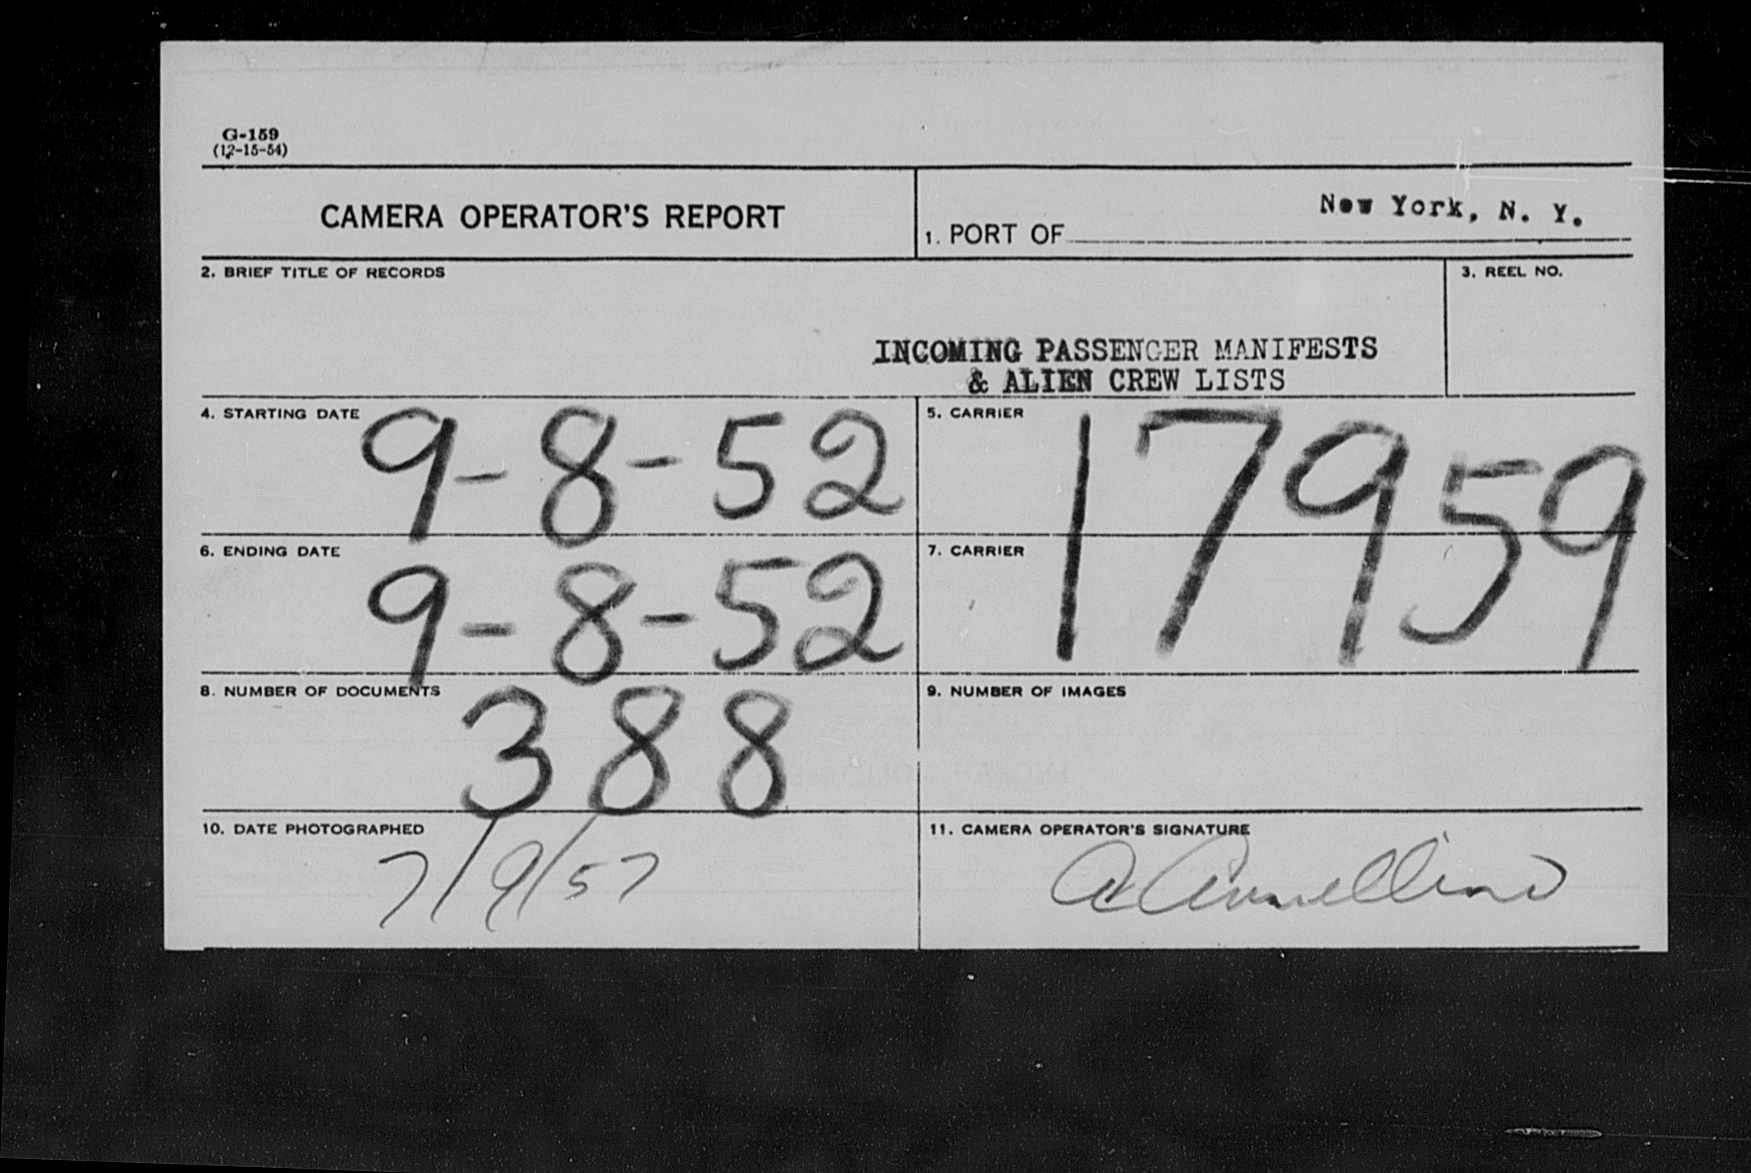 G-159
(12-15-54)
CAMERA OPERATOR'S REPORT
1. PORT OF New York, N. Y.
2. BRIEF TITLE OF RECORDS
INCOMING PASSENGER MANIFESTS
& ALIEN CREW LISTS
3. REEL NO.
4. STARTING DATE 9-8-52
5. CARRIER
17959
6. ENDING DATE
9-8-52
7. CARRIER
8. NUMBER OF DOCUMENTS
388
9. NUMBER OF IMAGES
10. DATE PHOTOGRAPHED
7/9/57
11. CAMERA OPERATOR'S SIGNATURE